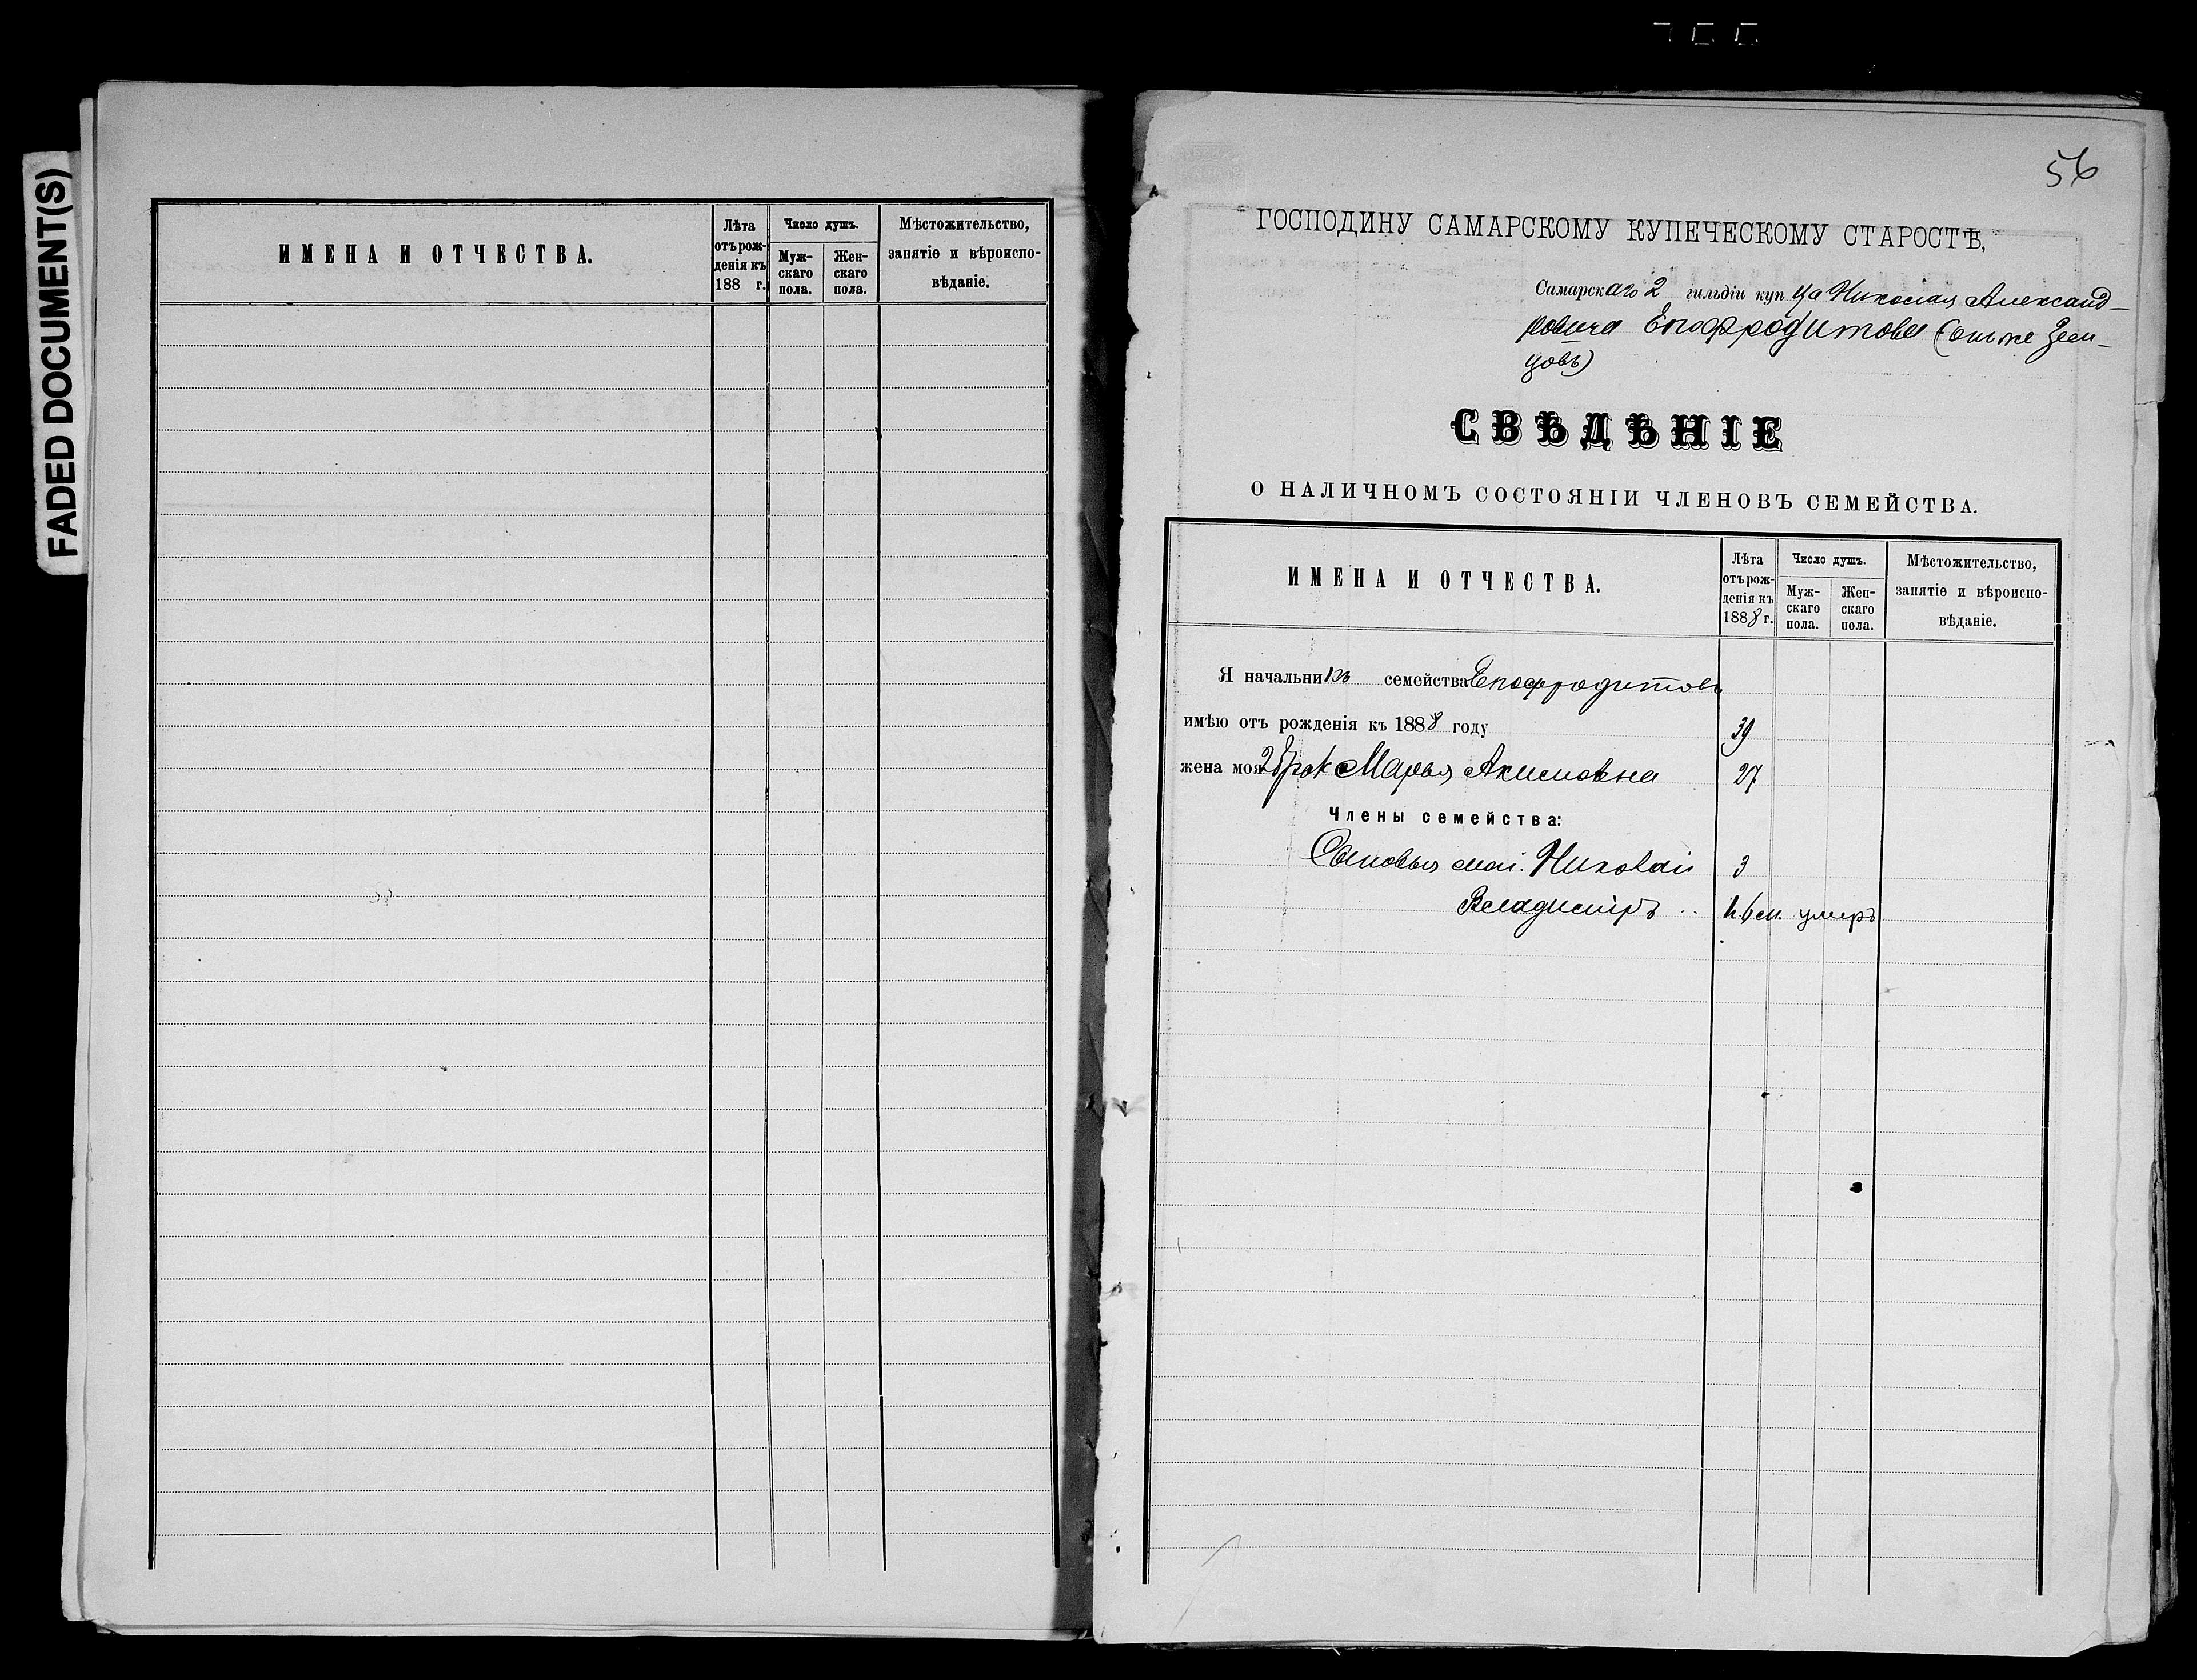 FADED DOCUMENT(S)
ИМЕНА И ОТЧЕСТВА.
Лѣта отъ рожденія къ 188 г.
Число душъ.
Мужскаго пола.
Женскаго пола.
Мѣстожительство, занятіе и вѣроисповѣданіе.
56
ГОСПОДИНУ САМАРСКОМУ КУПЕЧЕСКОМУ СТАРОСТѢ,
Самарскаго 2 гильдіи купца Николая Александ-
ровича Епафродитова (онъ же Зем-
цовъ)
СВѢДѢНІЕ
О НАЛИЧНОМЪ СОСТОЯНІИ ЧЛЕНОВЪ СЕМЕЙСТВА.
ИМЕНА И ОТЧЕСТВА.
Лѣта отъ рожденія къ 1888 г.
Число душъ.
Мужскаго пола.
Женскаго пола.
Мѣстожительство, занятіе и вѣроисповѣданіе.
Я начальникъ семейства Епафродитовъ
имѣю отъ рожденія къ 1888 году 39
жена моя 2 брака Марья Акимовна 27
Члены семейства:
Сыновья мои: Николай 3
Владиміръ 6 м. умеръ